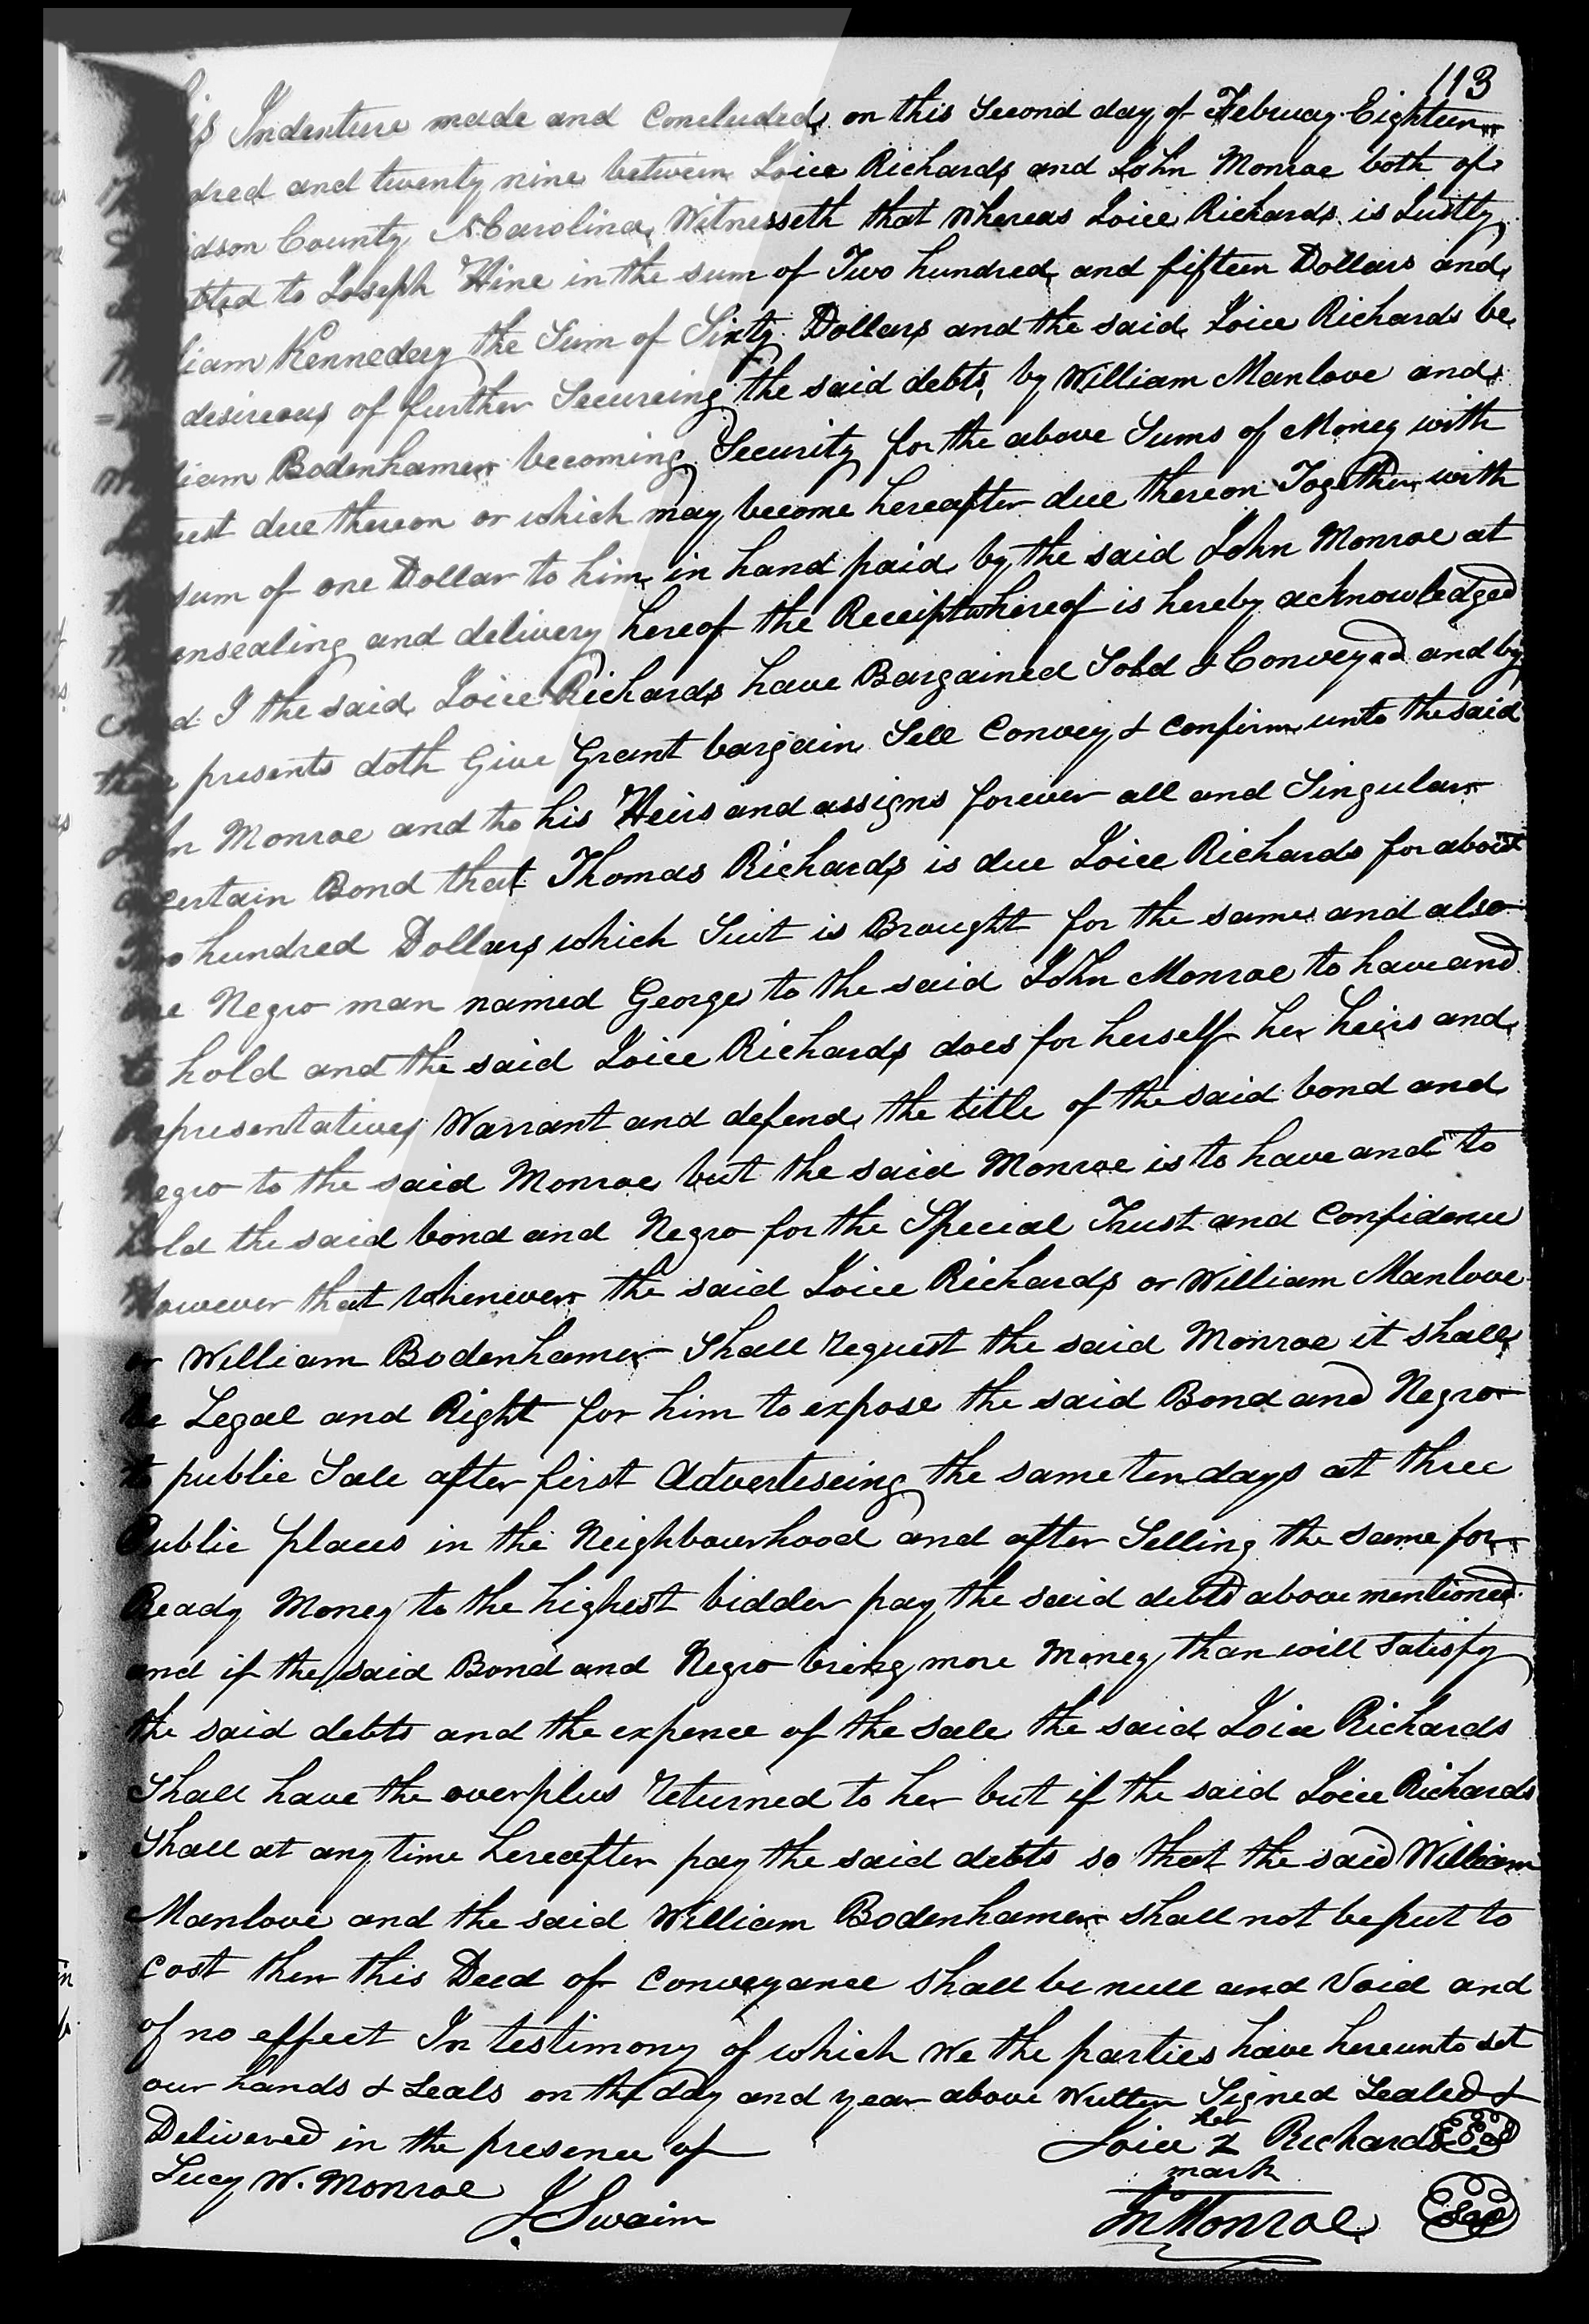 113
Indenture made and Concluded on this Second day of February Eighteen
and twenty nine between Loice Richards and John Monroe both of
County N Carolina Witnesseth that whereas Loice Richards is Justly
to Joseph Hine in the sum of Two hundred and fifteen Dollars and
Kennedey the Sum of Sixty Dollars and the said Loice Richards be
desireous of further Secureing the said debts by William Manlove and
Bodenhamer becoming Security for the above Sums of Money with
due thereon or which may become hereafter due thereon Together with
sum of one Dollar to him in hand paid by the said John Monroe at
ensealing and delivery hereof the Receipt whereof is hereby acknowledged
I the said Loice Richards have Bargained Sold & Conveyed and by
presents doth Give Grant bargain Sell Convey & confirm unto the said
Monroe and to his Heirs and assigns forever all and Singular
certain Bond that Thomas Richards is due Loice Richards for about
Two hundred Dollars which Suit is Brought for the same and also
one Negro man named George to the said John Monroe to have and
to hold and the said Loice Richards does for herself her heirs and
Representatives Warrant and defend the title of the said bond and
Negro to the said Monroe but the said Monroe is to have and to
hold the said bond and Negro for the Special Trust and Confidence
However that whenever the said Loice Richards or William Manlove
or William Bodenhamer Shall request the said Monroe it shall
be Legal and Right for him to expose the said Bond and Negro
to public Sale after first Adverteseing the same ten days at three
Public places in the Neighbourhood and after Selling the same for
Ready Money to the highest bidder pay the said debts above mentioned
and if the said Bond and Negro bring more Money than will Satisfy
the said debts and the expence of the sale the said Loice Richards
Shall have the overplus returned to her but if the said Loice Richards
Shall at any time hereafter pay the said debts so that the said William
Manlove and the said William Bodenhamer shall not be put to
cost then this Deed of Conveyance shall be null and Void and
of no effect In testimony of which we the parties have hereunto set
our hands & Seals on the day and year above Written Signed Sealed &
Delivered in the presence of
her
Loice Richards Seal
mark
Lucy W. Monroe
J Swaim
Jn Monroe Seal